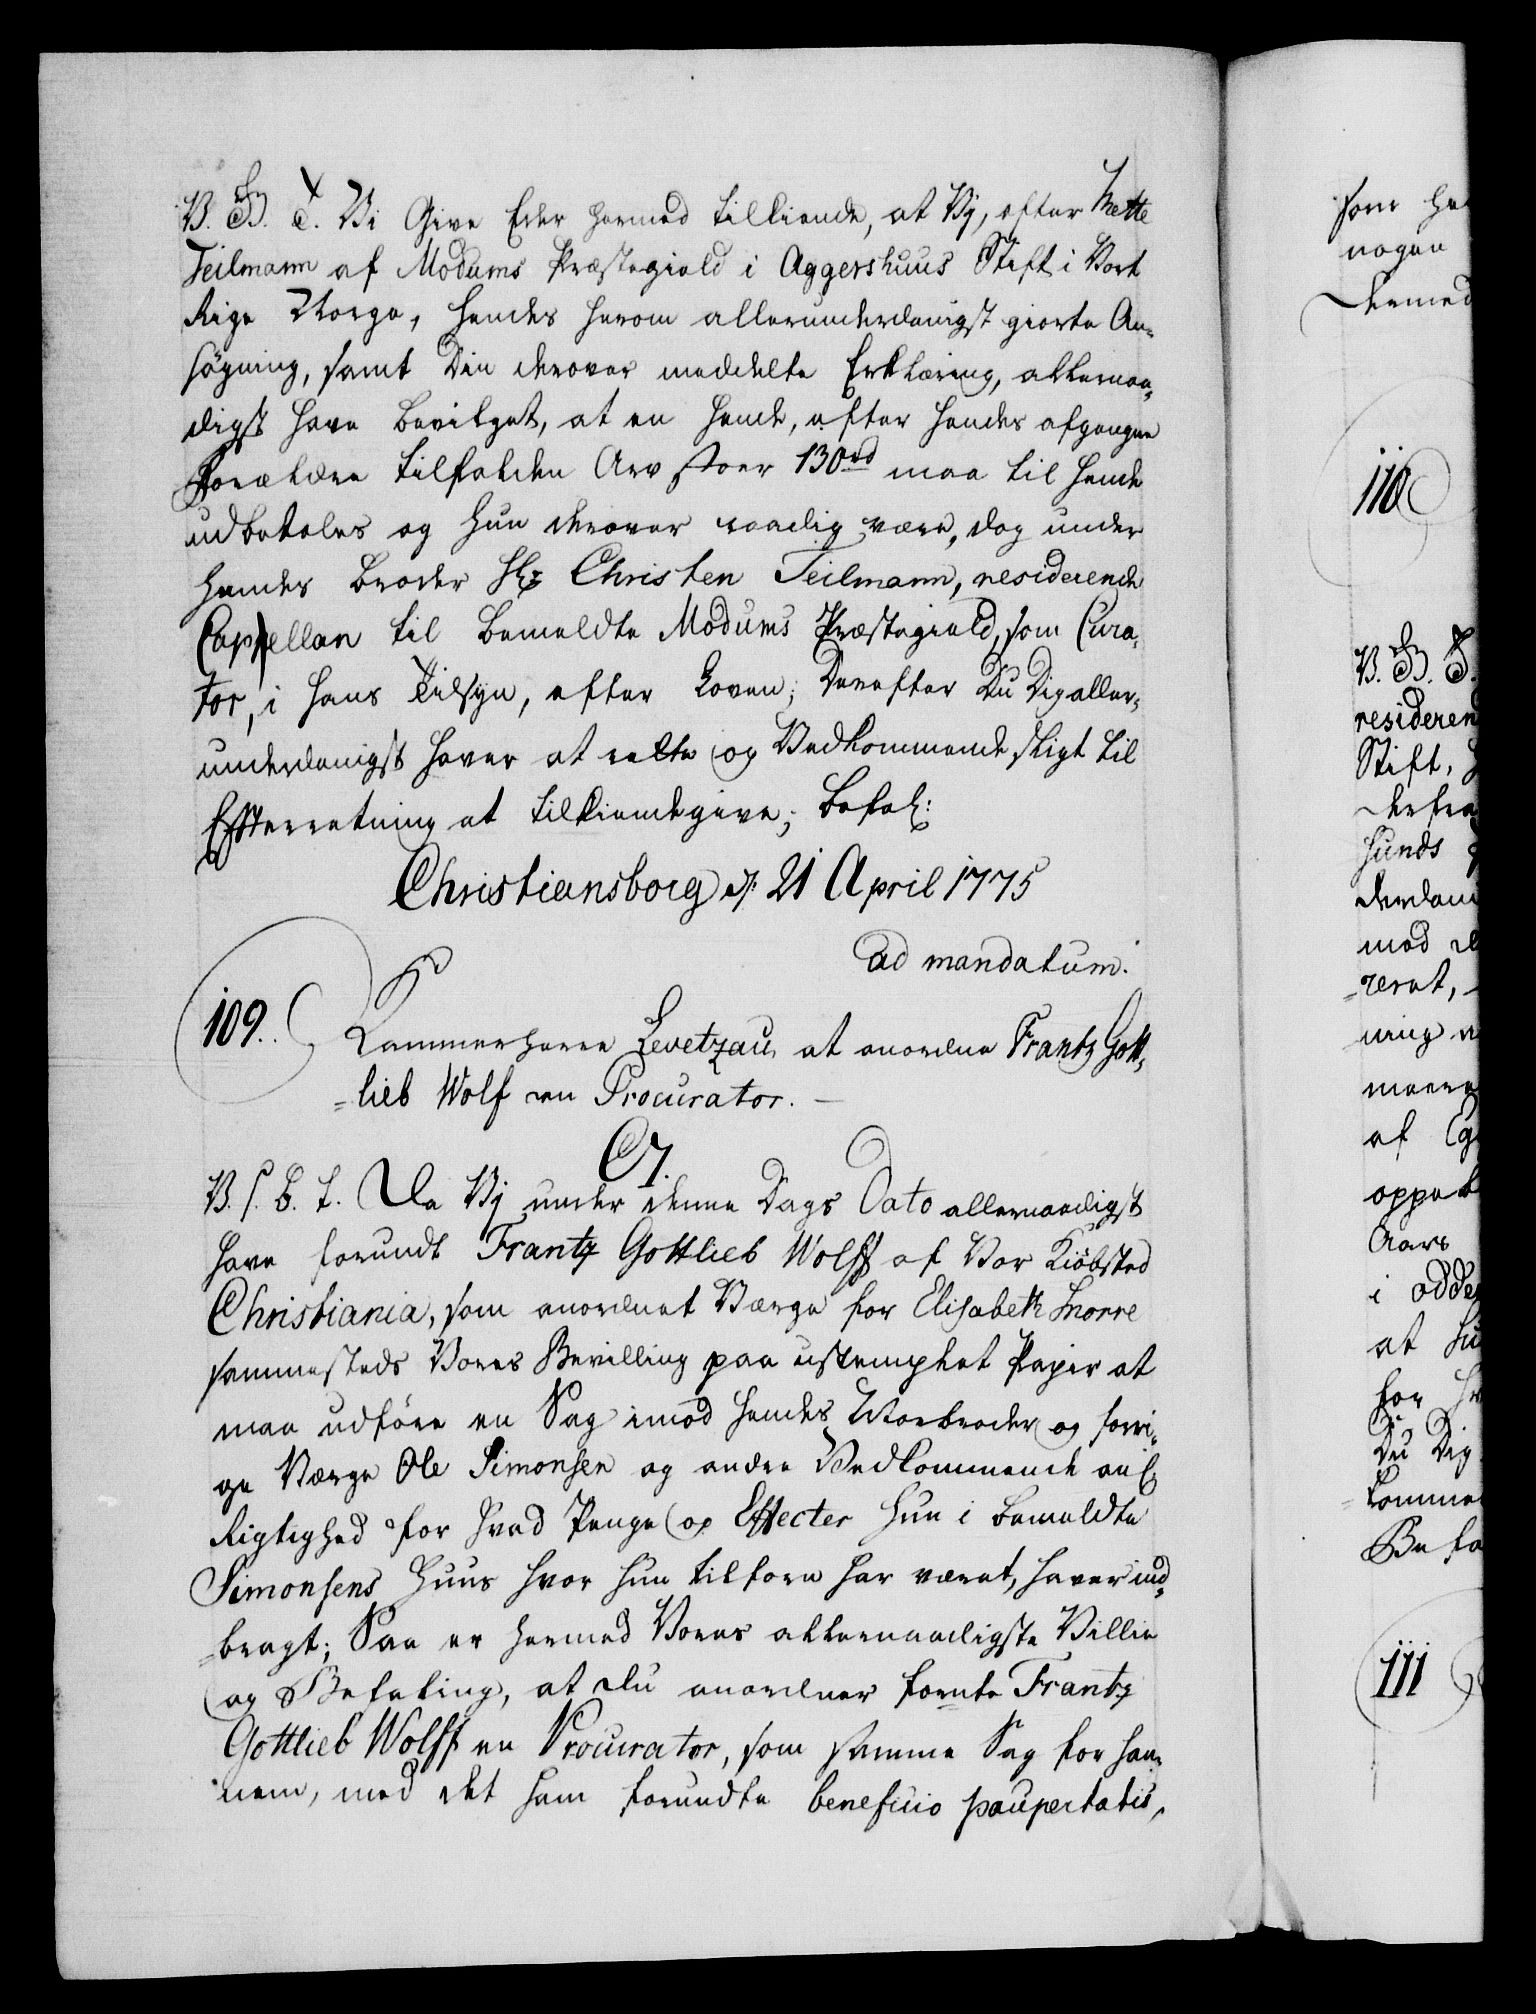 V. S. B. T. Vi Give Eder hermed tilkiende, at Vij, efter Mette
Teilmann af Modums Præstegield i Aggershuus Stift i Vort
Rige Norge, hendes herom allerunderdanigst giorte An-
søgning, samt Din derover meddelte Erklæring, allernaa-
digst have bevilget, at en hende, efter hendes afgangne
Forældre tilfalden Arv stoer 130 rd maa til hende
udbetales og hun derover raadig være, dog under
hendes broder Hr Christen Teilmann, residerende
Capellan til bemeldte Modums Præstegield, som Cura-
tor, i hans Tilsyn, efter Loven; Derefter Du Dig aller-
underdanigst haver at rette og Vedkommende sligt til
Efterretning at tilkiendegive; befal:
Christiansborg d. 21 April 1775
ad mandatum.
109. Kammerherre Levetzau at anordne Frantz Gott-
lieb Wolf en Procurator.
C7.
V. S. B. T. Da Vij under denne Dags Dato allernaadigst
have forundt Frantz Gottlieb Wolff af Vor Kiøbsted
Christiania, som anordnet Værge for Elisabeth Snorre
sammesteds Vores Bevilling paa ustemplet Papir at
maa udføre en Sag imod hendes Morbroder og forri-
ge Værge Ole Simonsen og andre Vedkommende anl.
Rigtighed for hvad Penge og Effecter hun i bemeldte
Simonsens Huus hvor hun tilforn har været, haver ind-
bragt; Saa er hermed Vores allernaadigste Villie
og Befaling, at du anordner fornte Frantz
Gottlieb Wolff en Procurator, som samme Sag for han-
nem, med det ham forundte beneficio paupertatis,
110
V. B. T.
residerend
Stift,
hunds
af
Aars
i
at
for
Du Dig
111